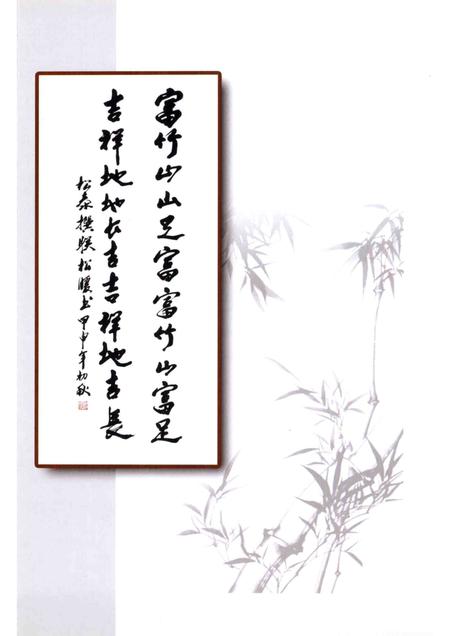 富竹山山足富富竹山富足
吉祥地地长吉吉祥地吉長
松泰撰联松暖书甲申年初秋